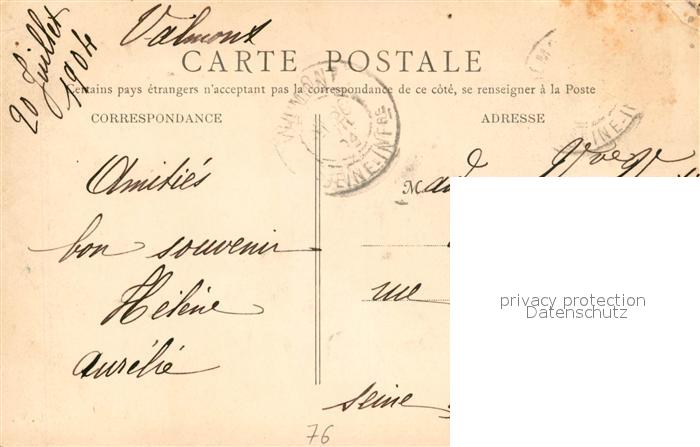 20 Juillet
1904
Valmont
CARTE POSTALE
Certains pays étrangers n'acceptant pas la correspondance de ce côté, se renseigner à la Poste
CORRESPONDANCE
ADRESSE
VALMONT
SEINE-INFRE
SEINE-IN
Amitiés
bon souvenir
Hélène
Aurélie
M
rue
Seine
privacy protection
Datenschutz
76